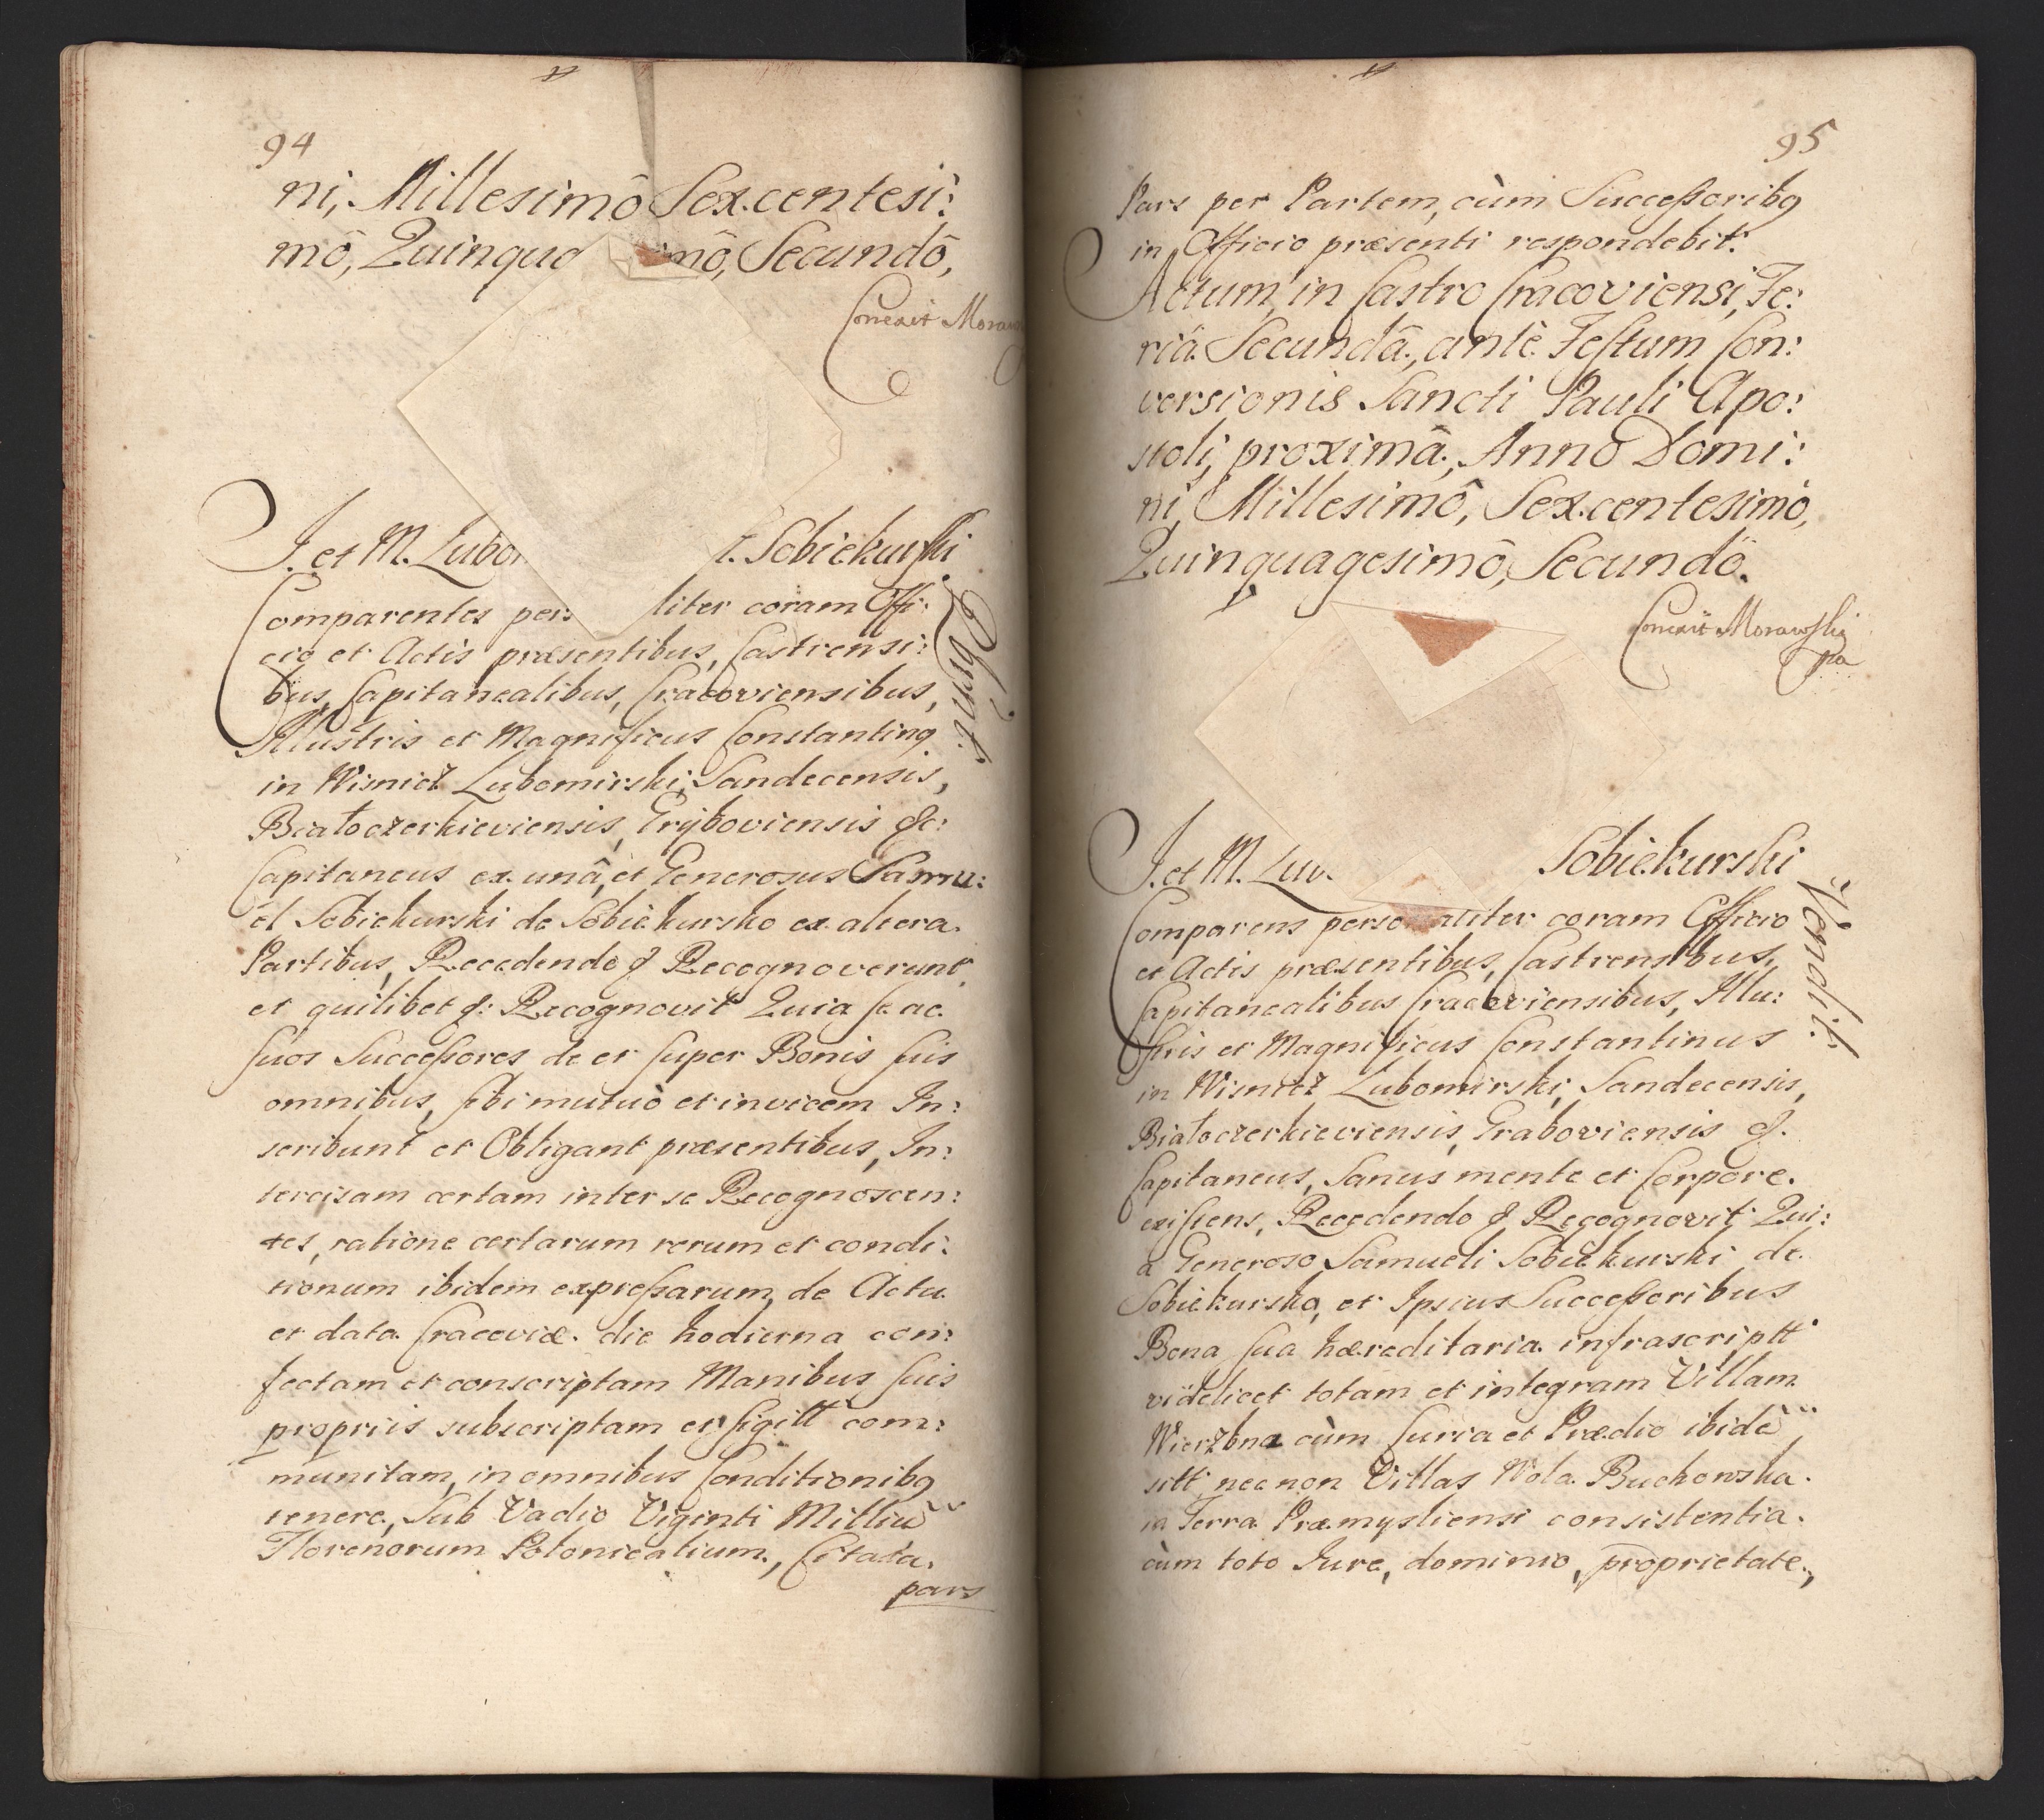 94
ni, Millesimô Sex.centesi:
mô, Quinqua mô, Secundô,
Correxit Moraw
J. et M. Lubo t. Sobiekurski
Comparentes per liter coram Offi:
cio et Actis præsentibus, Castrensi:
bus, Capitanealibus, Cracoviensibus,
Illustris et Magnificus Constantinq
in Wisnicz Lubomirski, Sandecensis,
Białoczerkieviensis, Grÿboviensis &c:
Capitaneus ex unâ, et Generosus Samu:
el Sobiekurski de Sobiekursko ex altera.
Partibus, Recedendo & Recognoverunt,
et quilibet &: Recognovit Quia se ac.
suos Successores de et super Bonis suis
omnibus, sibi mutuò et invicem In:
scribunt et Obligant præsentibus, In:
tercisam certam inter se Recognoscen:
tes, ratione certarum rerum et condi:
tionum ibidem expressarum, de Actu
et data Cracoviæ. die hodierna con:
fectam et conscriptam Manibus suis
propriis subscriptam et sigill com:
munitam, in omnibus Conditionibq
tenere, Sub Vadio Viginti Milliu
Florenorum Polonicalium, Citata.
pars
95
Pars per Partem, cùm Successoribq
in Officio præsenti respondebit.
Actum, in Castro Cracoviensi, Fe:
riâ Secundâ, antè Festum Con:
versionis Sancti Pauli Apo:
stoli, proximâ, Anno Domi:
ni, Millesimô, Sex.centesimô,
Quinquagesimô, Secundô.
Correxit Morawski
J. et M. Lub Sobiekurski
Comparens personaliter coram Officio
et Actis præsentibus, Castrensibus,
Capitanealibus Cracoviensibus, Illu:
stris et Magnificus Constantinus
in Wisnicz Lubomirski, Sandecensis,
Białoczerkieviensis, Graboviensis &.
Capitaneus, Sanus mente et Corpore.
existens, Recedendo & Recognovit Qui:
a Generoso Samueli Sobiekurski de
Sobiekursko, et Ipsius Successoribus
Bona sua hæreditaria infrascriptt
videlicet totam et integram Villam
Wierzbna cùm Curia et Prædio ibidē
sitt, nec non Villas Wola Buchowska.
in Terra Præmysliensi consistentia.
cùm toto Jure, dominio, proprietate,
Vendit.